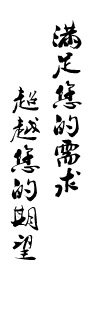 满足您的需求
超越您的期望